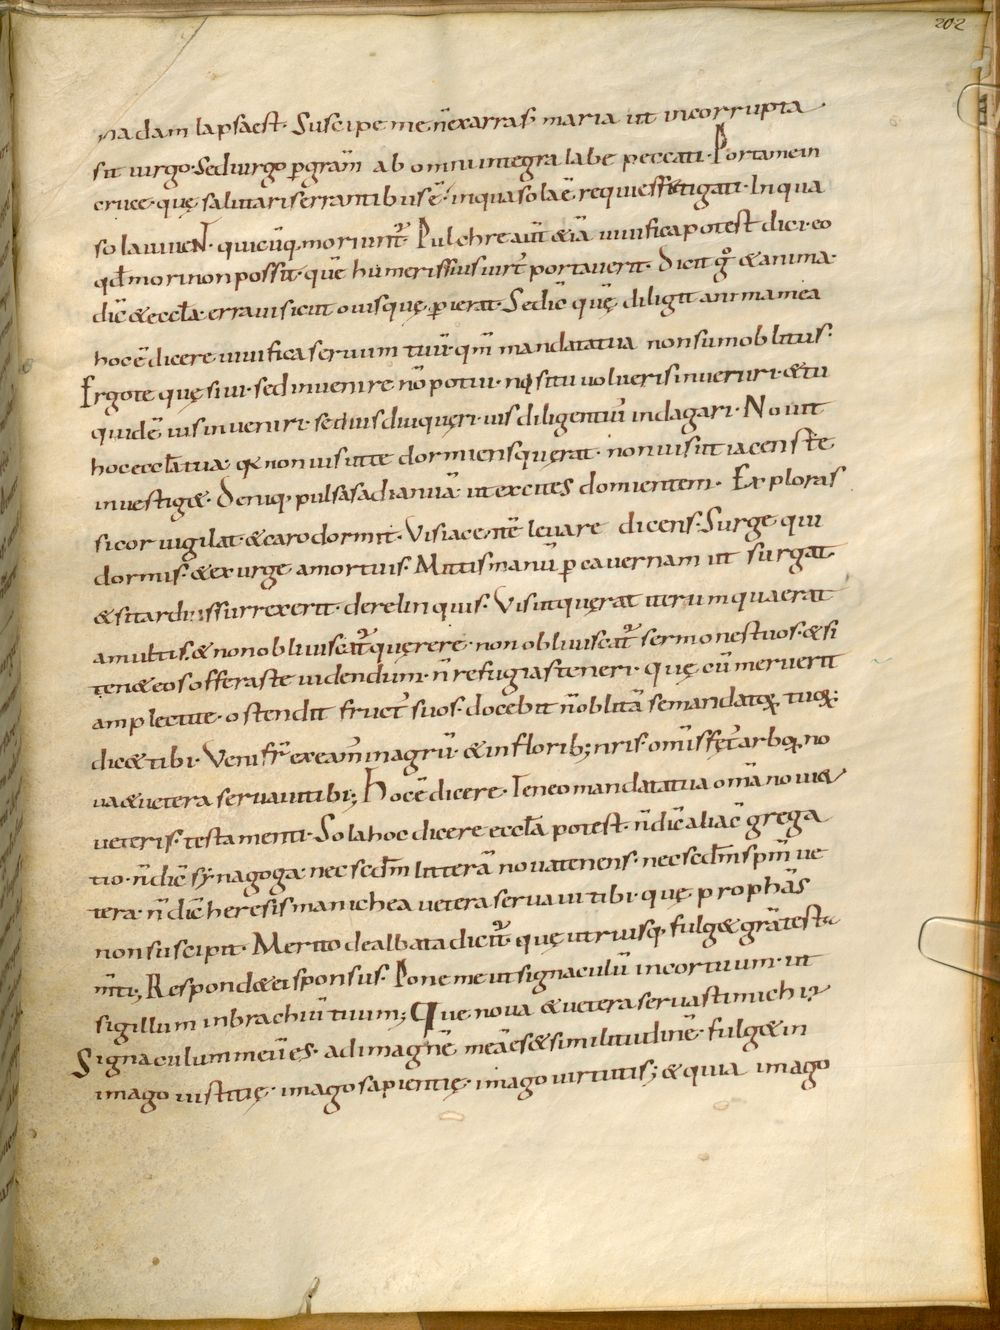 202
nadam lapsa est. Suscipe me n̄ ex arra sed maria ut incorrupta
sit uirgo. Sed uirgo ꝑ grām ab omni integra labe peccati. Porta me in
cruce. quę salutaris errantibus ē. in qua sola ē requies fatigati. In qua
sola uiueN̄. quicūq; moriunt᷑. Pulchre aut̄ & iā uiuifica potest dici. eo
qd̄ mori non possit. quē humeris suis uirt᷑ portauerit. Dicit gͦ & anima.
dic̄ & eccl̄a. erraui sicut ouis quę ꝑierat. Sed ic̄ quę̄ diligit anima mea
hoc ē dicere uiuifica seruum tuū. qm̄ mandata tua non sum oblitus.
Ergo te quęsiui. sed inuenire nō potui. nisi tu uolueris inueniri. & tu
quidē uis inueniri. sed uis diu quęri. uis diligentiu᷑ indagari. Nouit
hoc eccl̄a tua. quia non uis ut te dormiens quęrat. non uis ut iacens te
inuestig&. Deniq; pulsas ad ianuā. ut excites dormientem. Exploras
si cor uigilat. & caro dormit. Vis iacentē leuare dicens. Surge qui
dormis. & exurge a mortuis. Mittis manū ꝑ cauernam ut surgat.
& si tardius surrexerit. derelinquis. Vis ut quęrat iterum quaerat
a multis. & non obliuiscat᷑ quęrere. non obliuiscat᷑ sermones tuos. & si
ten& eos offeras te uidendum. n̄ refugias teneri. quę cū meruerit
amplecti te. ostendit fruct᷑ suos. docebit n̄ oblitā se mandatoꝝ tuoꝝ.
dic& tibi. Veni fr̄ exeam᷑ in agrū. & in florib; nris. om̄is fęt᷑ arboꝝ. no
ua & uetera seruaui tibi; Hoc ē dicere. Teneo mandata tua om̄a noui &
ueteris testamenti. Sola hoc dicere eccl̄a potest. n̄ dic̄ alia c̄grega
tio. n̄ dic̄ synagoga. nec secdm̄ litterā noua tenens. nec secdm̄ spm̄ ue
tera. n̄ dic̄ heresis manichea uetera seruaui tibi. quę prophās
non suscipit. Merito dealbata dicit᷑. quę utriusq; fulg& grā testa
m̄ti; Respond& ei sponsus. Pone me ut signaculū in cor tuum. ut
sigillum in brachiū tuum; Que noua & uetera seruasti michi;
Signaculum meū es. ad imaginē meā es & similitudinē. fulg& in
imago iustitię. imago sapientię. imago uirtutis; & quia imago